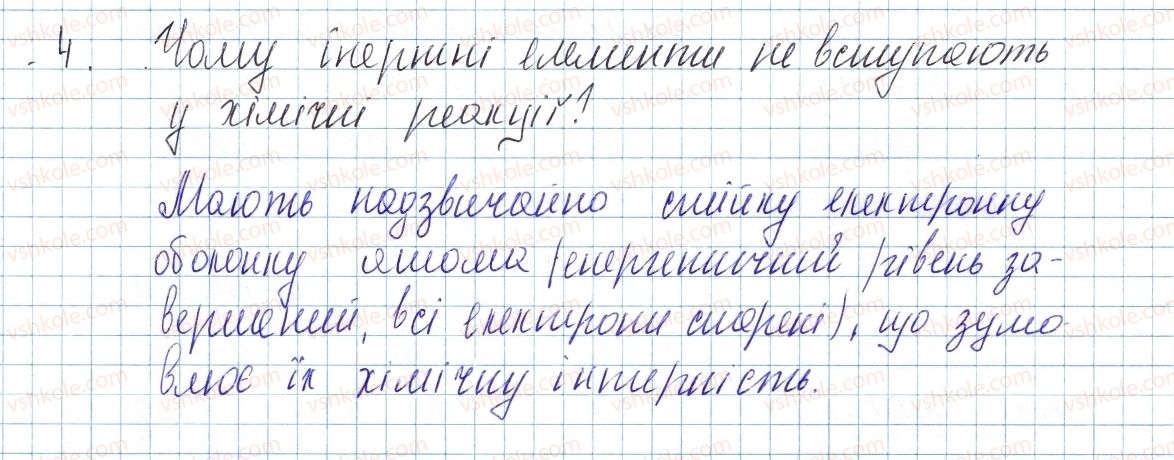 4. Чому інертні елементи не вступають
у хімічні реакції?
Мають надзвичайно стійку електронну
оболонку атома (енергетичний рівень за-
вершений, всі електрони спарені), що зумо-
влює їх хімічну інтерність.